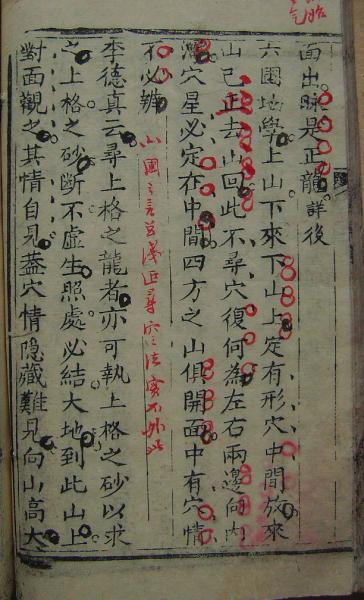 面出脉是正龍詳後
六圃地學上山下來下山上定有形穴中間放來
山已正去山回此不尋穴復何為左右兩邊向内
灣穴星必定在中間四方之山俱開面中有穴情
不必辨
山圃之言甚淺近尋穴法實不外此
李德真云尋上格之龍者亦可執上格之砂以求
之上格之砂斷不虛生照處必結大地到此山上
對面觀之其情自見蓋穴情隐藏難見向山高大